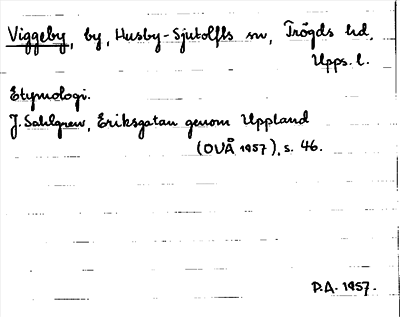 Viggeby, by, Husby-Sjutolfts sn, Trögds hd,
Upps. l.
Etymologi.
J. Sahlgren, Eriksgatan genom Uppland
(OUÅ 1957), s. 46.
P.A. 1957.